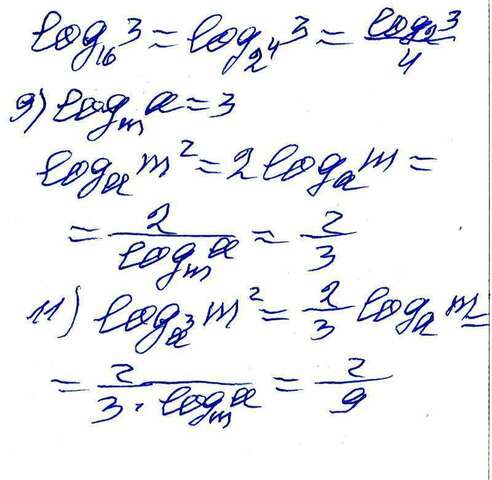 log₁₆3 = log₂⁴3 = log₂3/4
9) logₘa = 3
logₐm² = 2logₐm =
= 2/logₘa = 2/3
11) logₐ³m² = 2/3 logₐm =
= 2/(3·logₘa) = 2/9